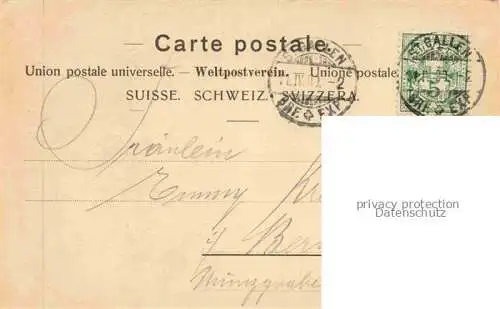 Carte postale.
Union postale universelle. — Weltpostverein. — Unione postale
SUISSE. SCHWEIZ. SVIZZERA.
ST. GALLEN
BRF. EXP.
ST. GALLEN
BRF. EXP.
5
Fräulein
Emmy
i/ Bern
privacy protection
Datenschutz